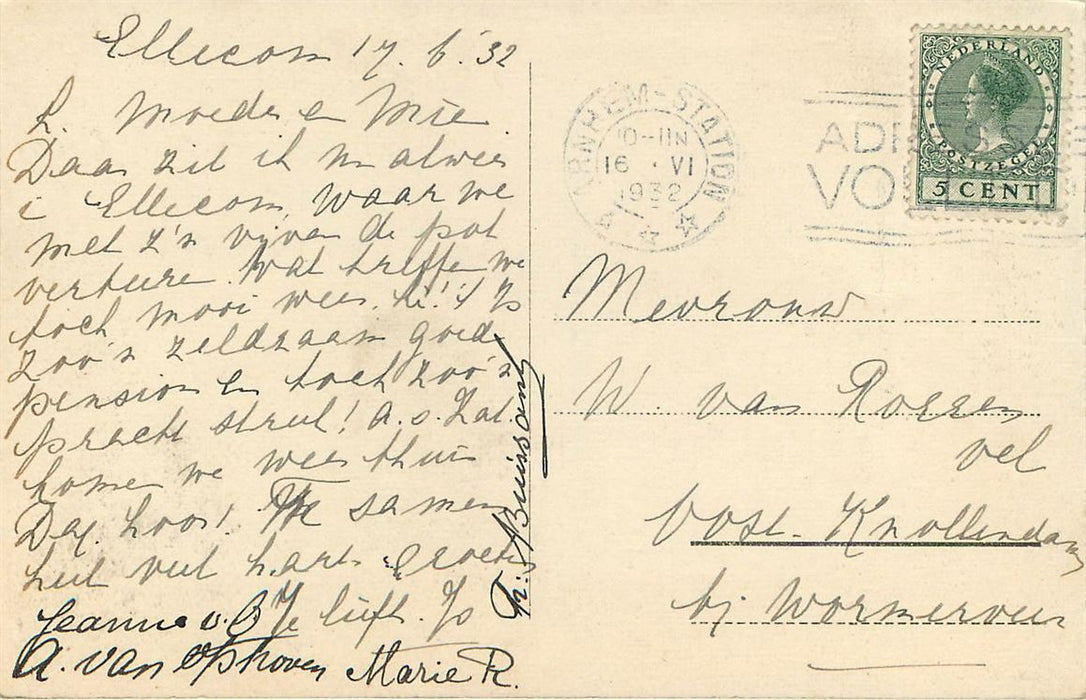 Ellecom 17. 6.'32
L. Moeder en Mie.
Daar zit ik nu alweer
i Ellecom, waar we
met z'n vijven de pot
verteure. Wat treffen we
toch mooi weer, hè! 't Is
zoo'n zeldzaam goed
pension en toch zoo'n
pracht streek! a.s. Zat.
komen we weer thuis
Dag hoor! Te samen
heel veel hart. groeten
Je liefh. Jo
Jeanne v. B
A. van Ophoven Marie R.
Tr. Buissant
ARNHEM-STATION
10-11N
16 VI
1932
ADRESS
VO
NEDERLAND
POSTZEGEL
5 CENT
Mevrouw
W. van Roezen
vel
Oost-Knollendam
bij Wormerveer